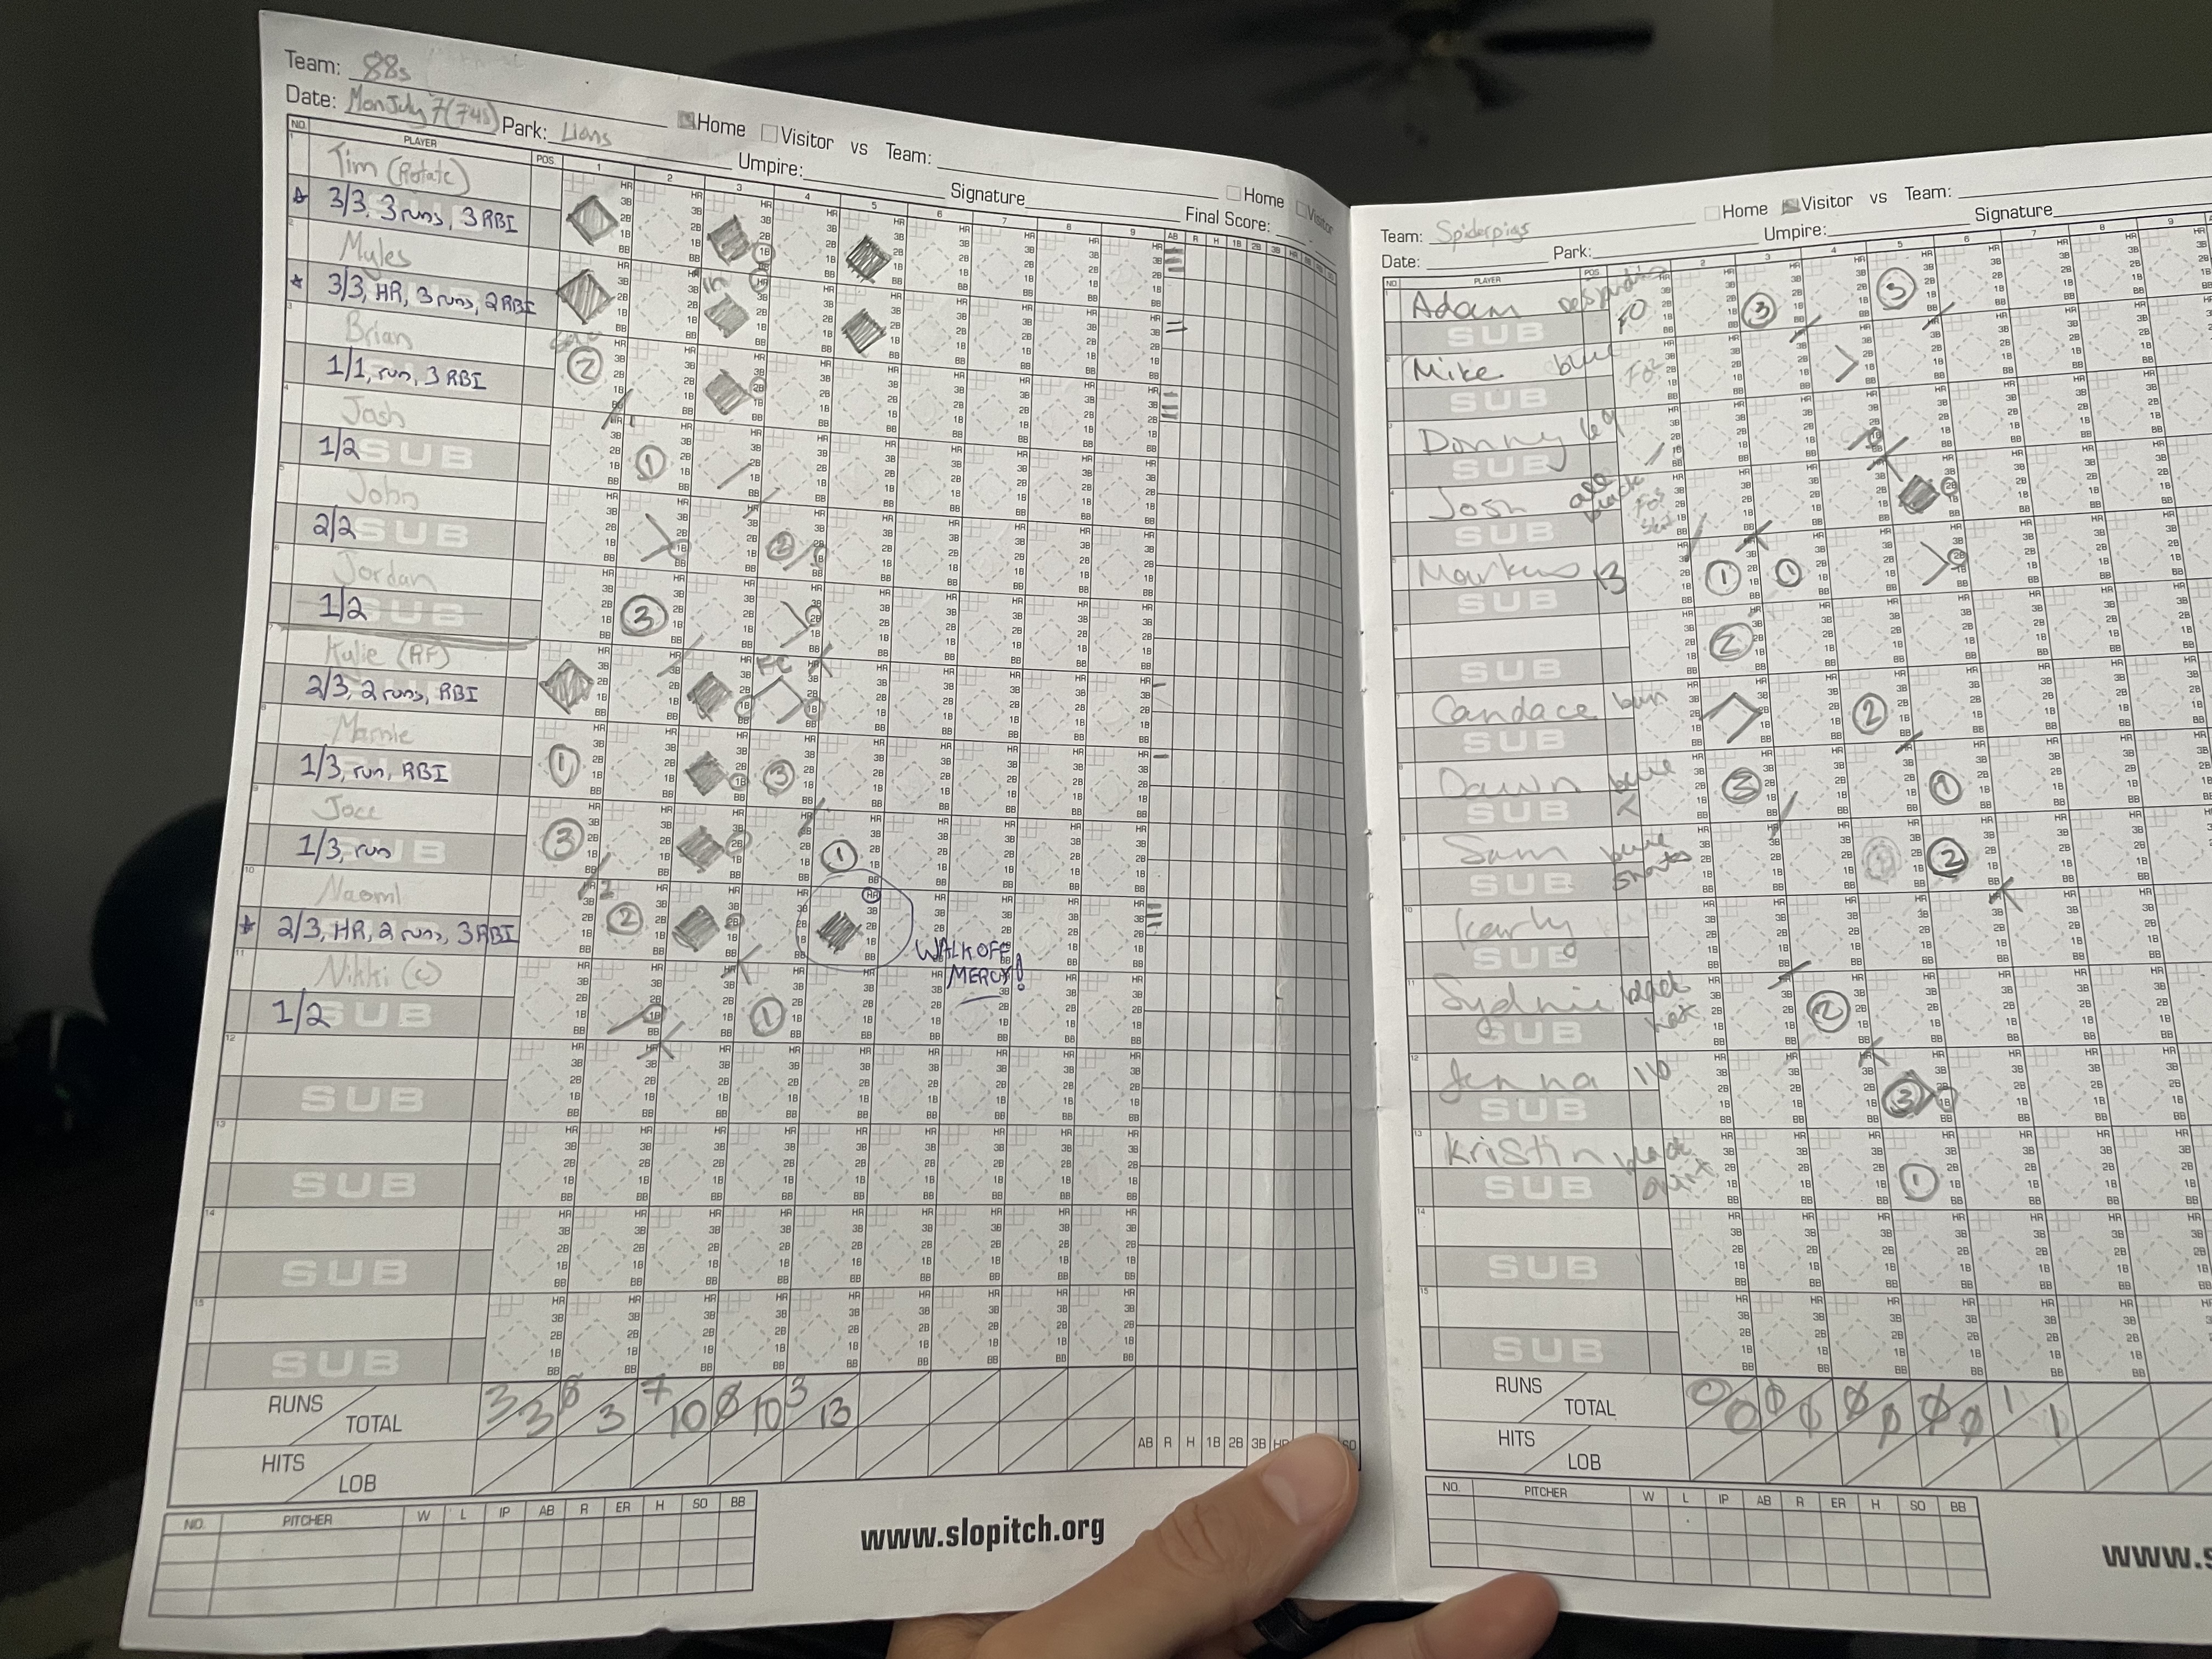 Team: 88s
Date: Mon July 7 (745) Park: Lions
Home Visitor vs Team:
Umpire: Signature Home Visitor
Final Score:
NO. PLAYER POS. 1 2 3 4 5 6 7 8 9 AB R H 1B 2B 3B HR
1 Tim (Rotate)
3/3, 3 runs, 3 RBI
2 Myles
3/3, HR, 3 runs, 2 RBI
3 Brian
1/1, run, 3 RBI
4 Josh
1/2 SUB
5 John
2/2 SUB
6 Jordan
1/2 SUB
7 Kylie (RF)
2/3, 2 runs, RBI
FC
8 Marnie
1/3, run, RBI
9 Joce
1/3, run
10 Naomi
2/3, HR, 2 runs, 3 RBI
WALK OFF
MERCY!
11 Nikki (C)
1/2 SUB
12
SUB
13
SUB
14
SUB
15
SUB
RUNS TOTAL 3 3 0 3 7 10 0 10 3 13
HITS LOB
AB R H 1B 2B 3B HR SO
NO. PITCHER W L IP AB R ER H SO BB
www.slopitch.org
Team: Spiderpigs
Home Visitor vs Team:
Date: Park: Umpire: Signature
NO. PLAYER POS. 1 2 3 4 5 6 7 8 9
1 Adam
SUB
2 Mike blue
SUB
3 Donny leg
SUB
4 Josh all black
SUB
5 Markus 13
SUB
6
SUB
7 Candace bun
SUB
8 Dawn blue
SUB
9 Sam blue shorts
SUB
10 Karly
SUB
11 Sydnie black hat
SUB
12 Jenna 16
SUB
13 Kristin black
SUB
14
SUB
15
SUB
RUNS TOTAL 0 0 0 0 0 0 0 0 1 1
HITS LOB
NO. PITCHER W L IP AB R ER H SO BB
www.s